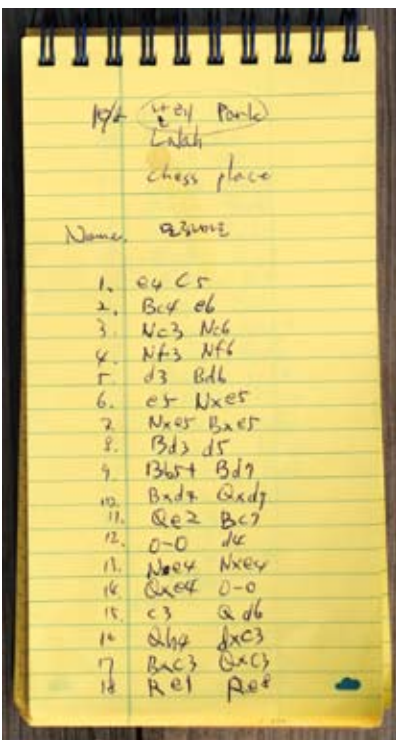 Park
chess place
Name.
1. e4 C5
2. Bc4 e6
3. Nc3 Nc6
4. Nf3 Nf6
5. d3 Bd6
6. e5 Nxe5
7. Nxe5 Bxe5
8. Bd3 d5
9. Bb5+ Bd7
10. Bxd7 Qxd7
11. Qe2 Bc7
12. 0-0 d4
13. Nxe4
14 Qxe4 0-0
15 c3 Qd6
16 Qh4 dxc3
17 BxC3 QxC3
18 Re1 Re8